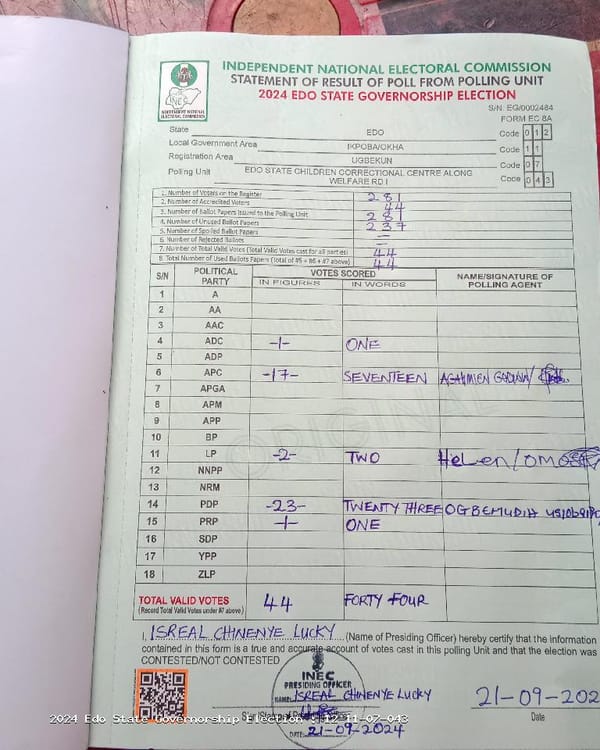 INDEPENDENT NATIONAL ELECTORAL COMMISSION
STATEMENT OF RESULT OF POLL FROM POLLING UNIT
2024 EDO STATE GOVERNORSHIP ELECTION
INEC
INDEPENDENT NATIONAL ELECTORAL COMMISSION
S/N: EG/0002484
FORM EC 8A
State EDO Code 0 1 2
Local Government Area IKPOBA/OKHA Code 1 1
Registration Area UGBEKUN Code 0 7
Polling Unit EDO STATE CHILDREN CORRECTIONAL CENTRE ALONG WELFARE RD I Code 0 4 3
1. Number of Voters on the Register 281
2. Number of Accredited Voters 44
3. Number of Ballot Papers Issued to the Polling Unit 281
4. Number of Unused Ballot Papers 237
5. Number of Spoiled Ballot Papers =
6. Number of Rejected Ballots =
7. Number of Total Valid Votes (Total Valid Votes cast for all parties) 44
8. Total Number of Used Ballots Papers (Total of #5 + #6 + #7 above) 44
S/N POLITICAL PARTY VOTES SCORED NAME/SIGNATURE OF POLLING AGENT
IN FIGURES IN WORDS
1 A
2 AA
3 AAC
4 ADC -1- ONE
5 ADP
6 APC -17- SEVENTEEN
7 APGA
8 APM
9 APP
10 BP
11 LP -2- TWO Helen/
12 NNPP
13 NRM
14 PDP -23- TWENTY THREE OGBEMUDIA
15 PRP -1- ONE
16 SDP
17 YPP
18 ZLP
TOTAL VALID VOTES 44 FORTY FOUR
(Record Total Valid Votes under #7 above)
I, ISREAL CHINENYE LUCKY (Name of Presiding Officer) hereby certify that the information
contained in this form is a true and accurate account of votes cast in this polling Unit and that the election was
CONTESTED/NOT CONTESTED
INEC
PRESIDING OFFICER
NAME: ISREAL CHINENYE LUCKY
21-09-202
Date
DATE: 21-09-2024
2024 Edo State Governorship Election
ORIGINAL